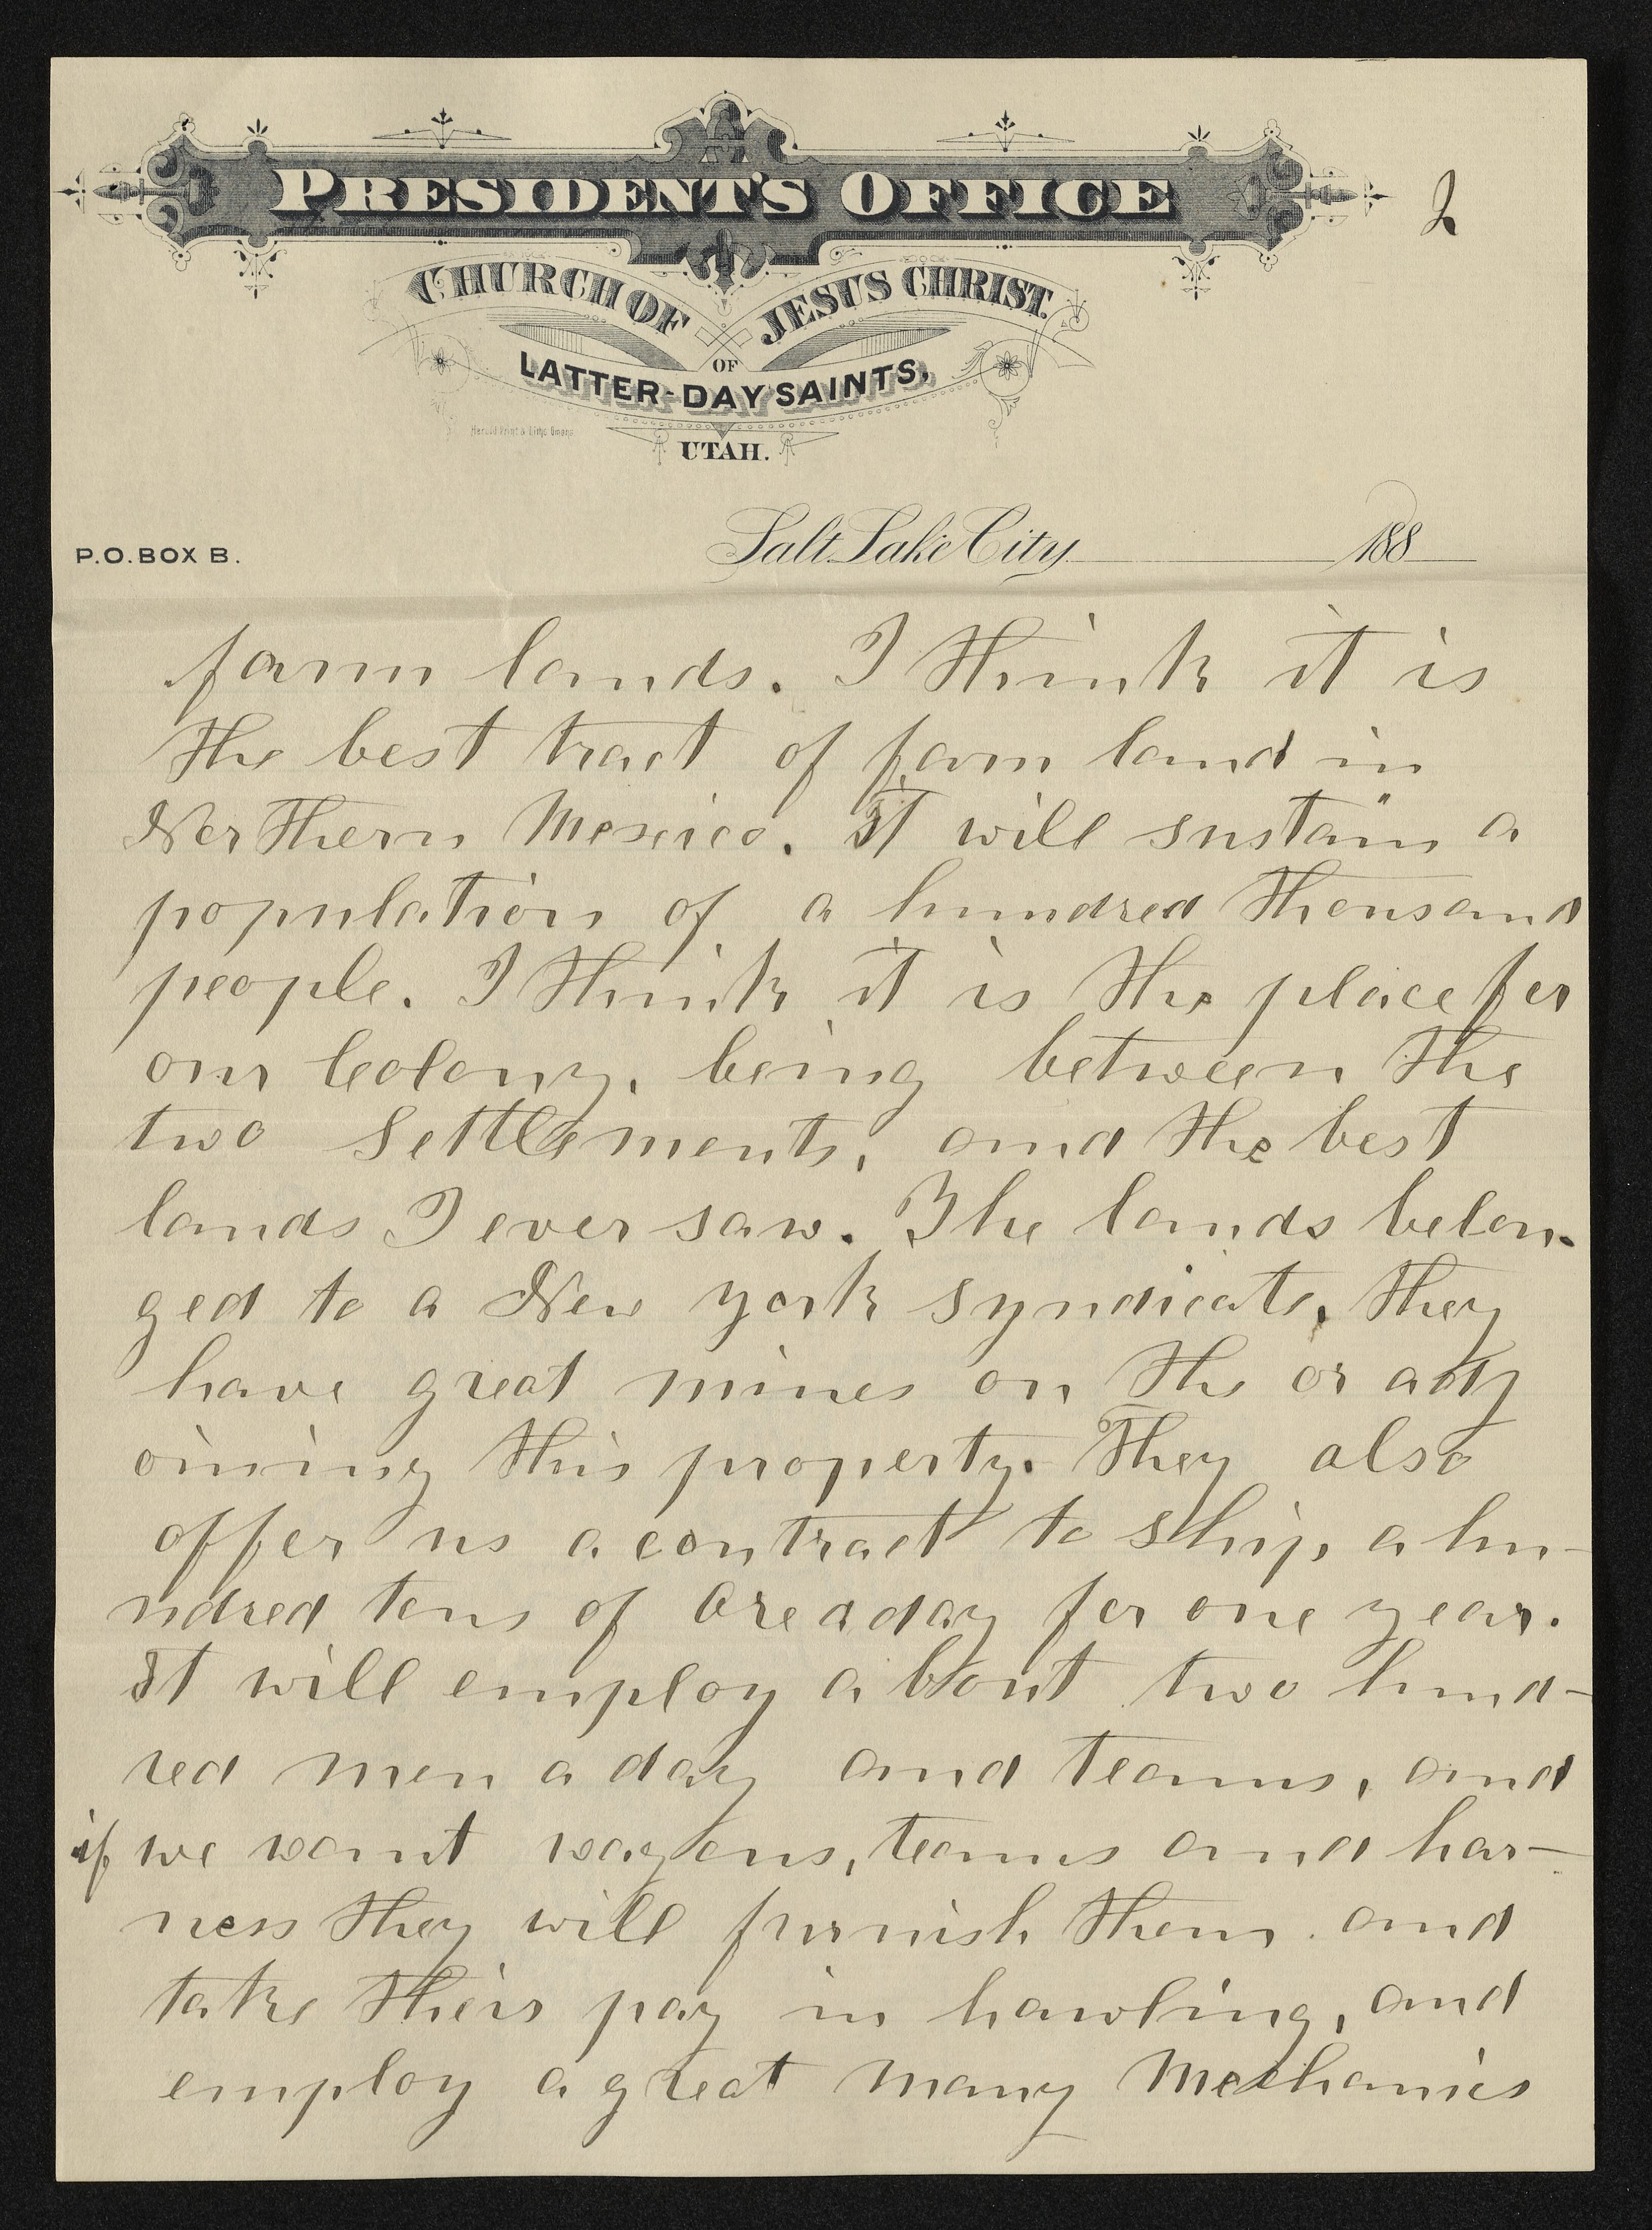 PRESIDENT'S OFFICE
2
CHURCH OF JESUS CHRIST
OF
LATTER-DAY SAINTS,
UTAH.
P.O. BOX B.
Salt Lake City 188
farm lands. I think it is
the best tract of farm land in
Northern Mexico. It will sustain a
population of a hundred thousand
people. I think it is the place for
our Colony, being between the
two settlements, and the best
lands I ever saw. The lands belon-
ged to a New york syndicate, they
have great mines on the or adj
oining this property. They also
offer us a contract to ship a hu-
ndred tons of Ore a day for one year.
It will employ about two hund-
red men a day and teams, and
if we want wagons, teams and har-
ness they will furnish them and
take theirs pay in hawling, and
employ a great many Mechanics